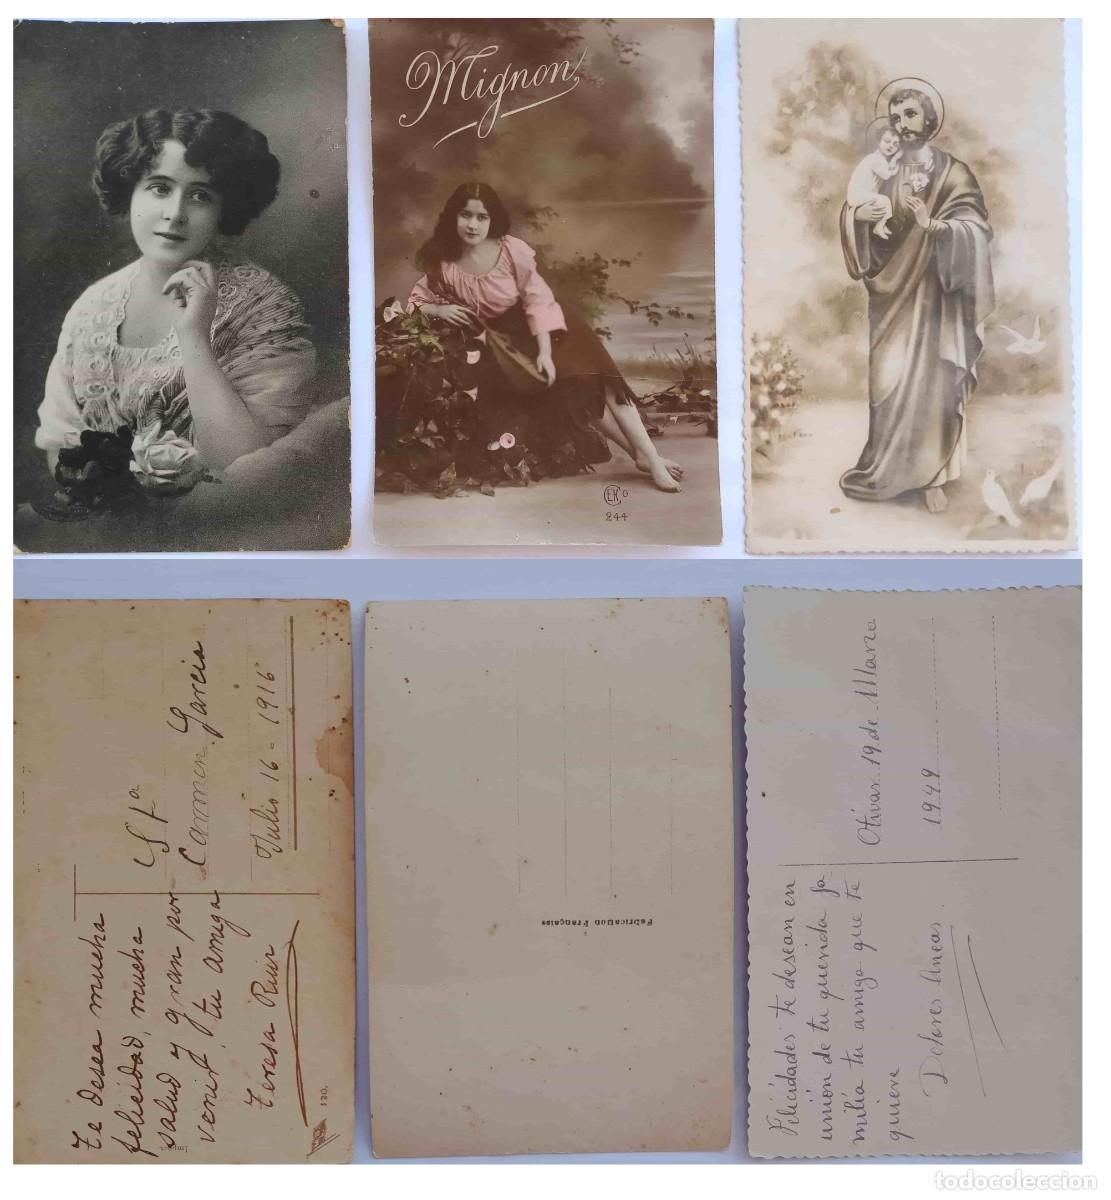 Mignon
EKCo
244
Te desea mucha
felicidad, mucha
salud y gran por
venir, tu amiga
Teresa Ruir
Sta
Carmen Garcia
Julio 16 = 1916
120.
Fabrication Française
Felicidades te desean en
unión de tu querida fa-
milia tu amiga que te
quiere
Dolores Aneas
Otivar 19 de Marzo
1949
todocoleccion